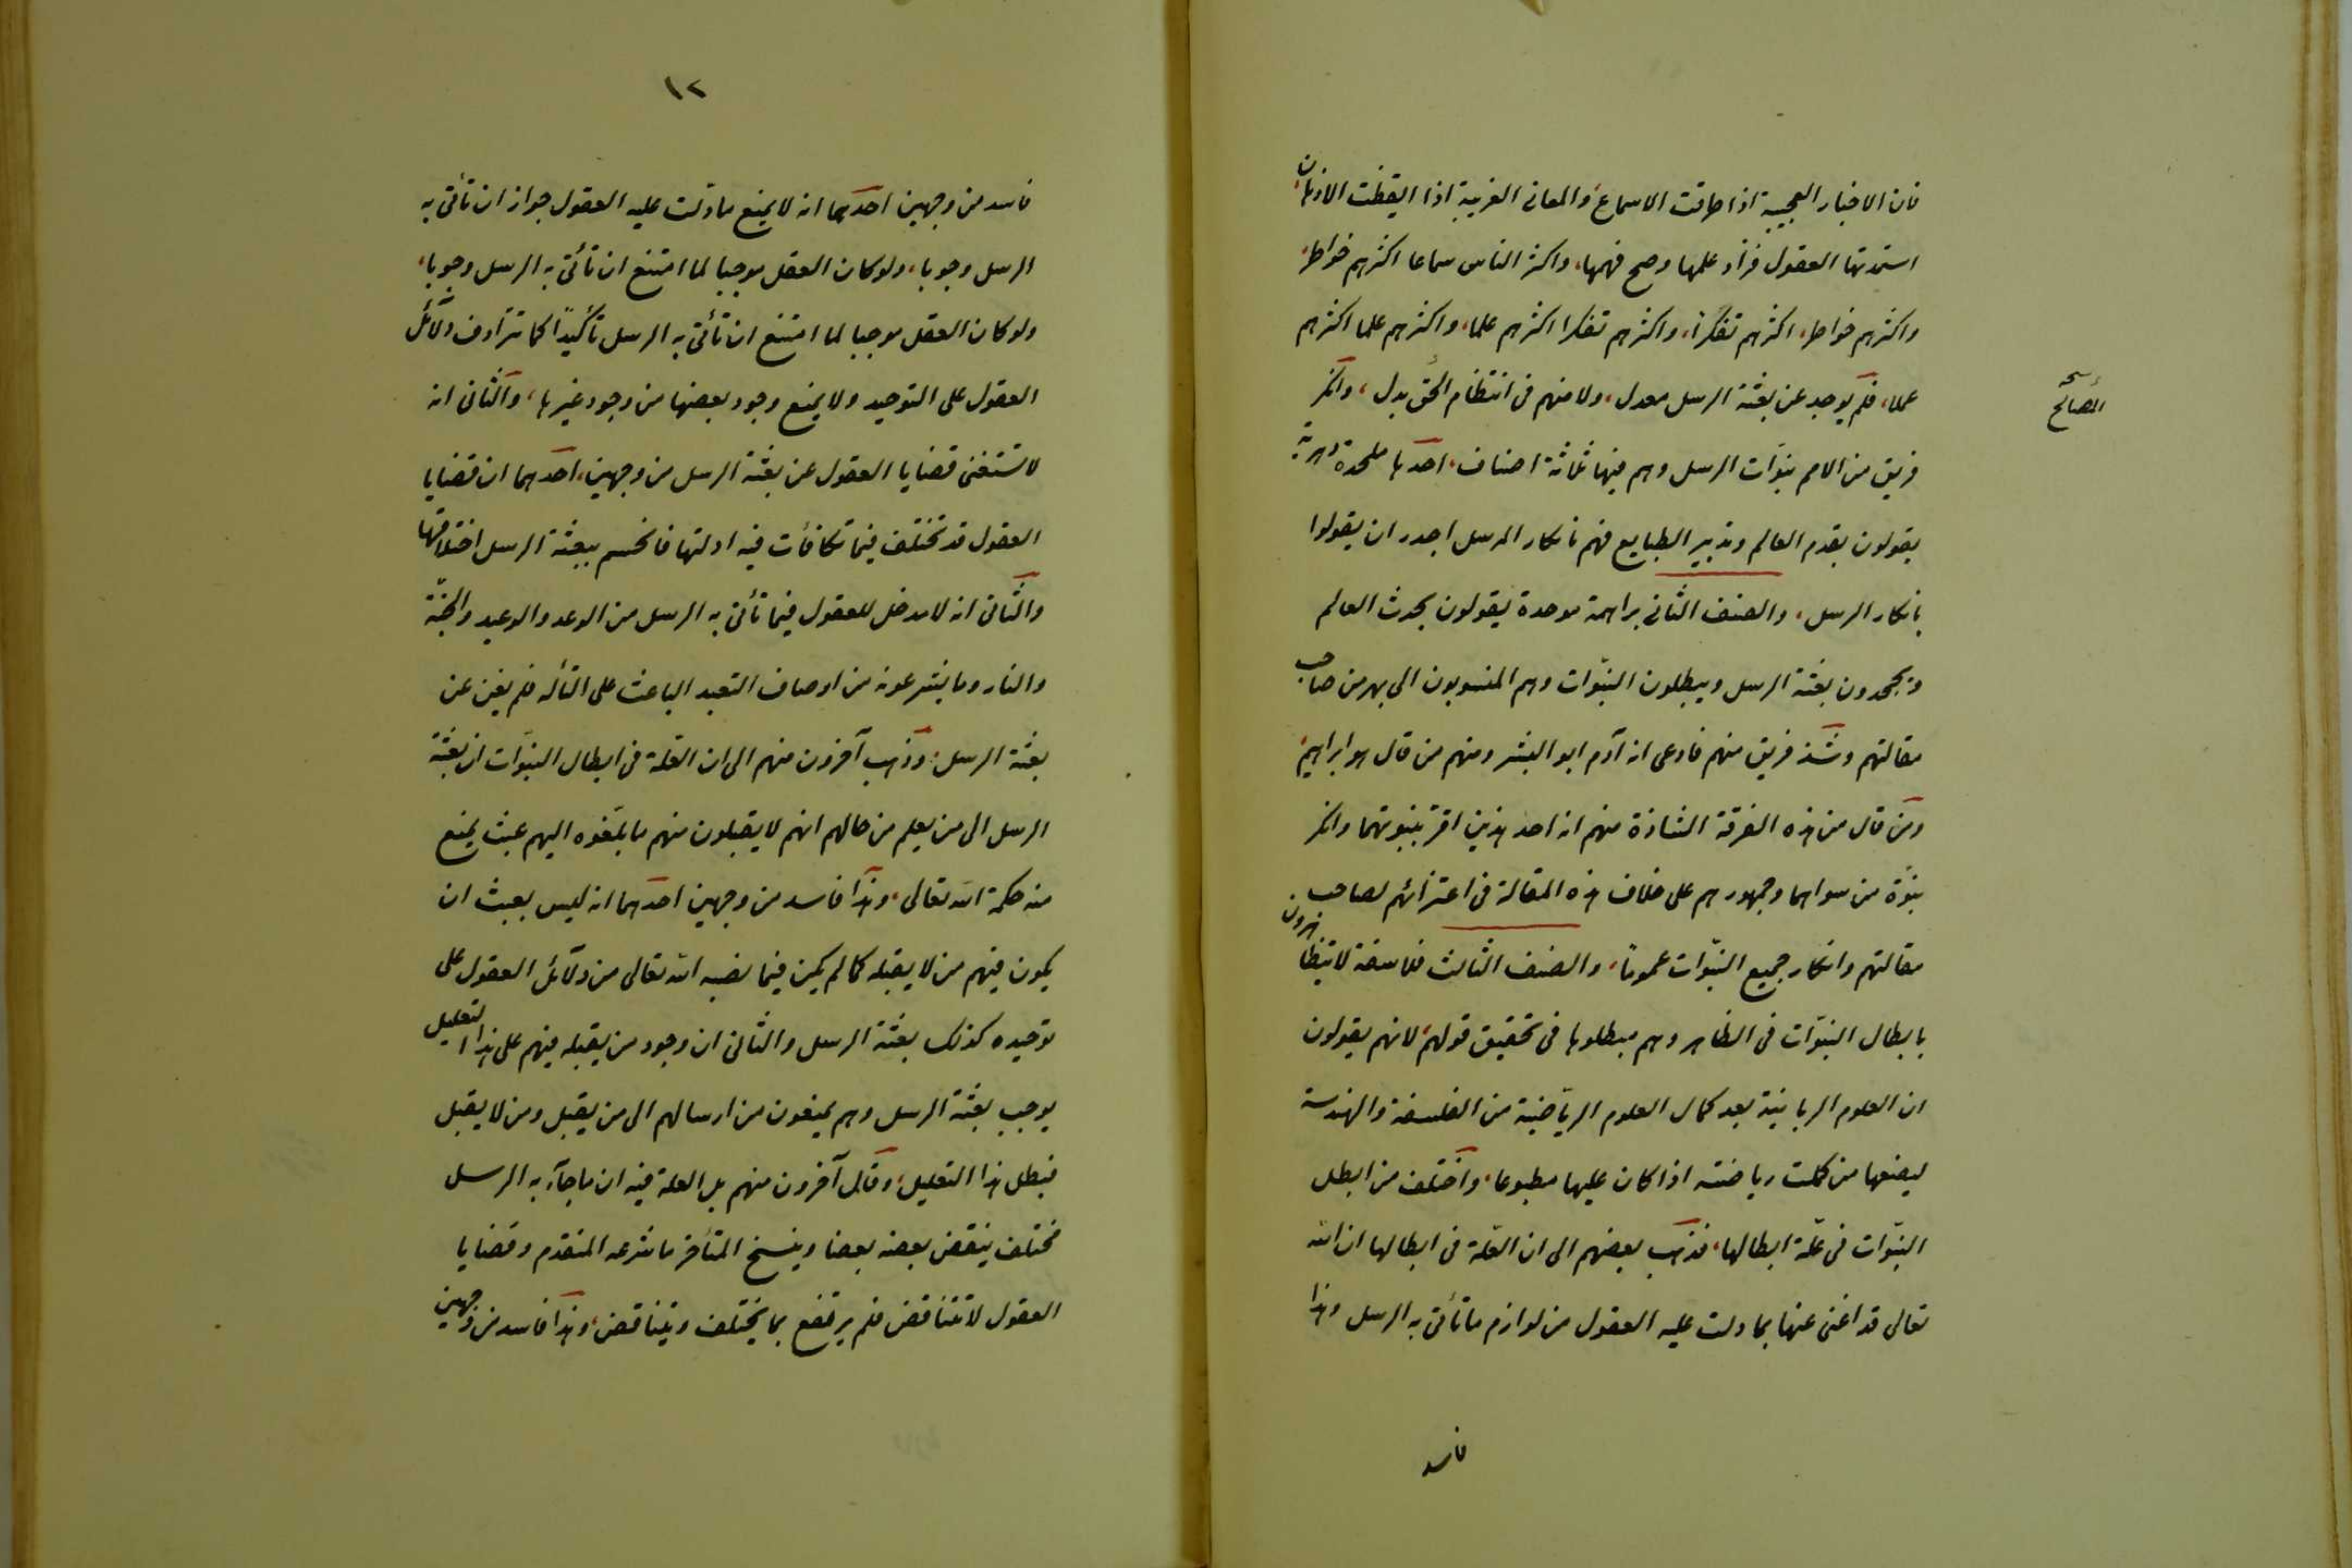 فان الاخبار العجيبة اذا طرقت الاسماع، والمعانى الغريبة اذا ايقظت الاذهان،
استمدتها العقول فزاد علمها وصح فهمها، واكثر الناس سماعا اكثرهم خواطر،
واكثرهم خواطر، اكثرهم تفكرا، واكثرهم تفكرا اكثرهم علما، واكثرهم علما اكثرهم
عملا، فلم يوجد عن بعثة الرسل معدل، ولا منهم فى انتظام الحق بدل، وانكر
نسخه
المصالح
فريق من الامم نبوات الرسل وهم فيها ثلاثة اصناف، احدها ملحدة دهرية
يقولون بقدم العالم وتدبير الطبايع فهم بانكار المرسل اجدر ان يقولوا
بانكار الرسل، والصنف الثانى براهمة موحدة يقولون بحدث العالم
ويجحدون بعثة الرسل ويبطلون النبوات وهم المنسوبون الى بهرمن صاحب
مقالتهم وشذ فريق منهم فادعى انه آدم ابو البشر ومنهم من قال هو ابراهيم،
ومن قال من هذه الفرقة الشاذة منهم انه احد هذين اقر بنبوتهما وانكر
نبوة من سواهما وجمهورهم على خلاف هذه المقالة فى اعتزائهم لصاحب
مقالتهم وانكار جميع النبوات عموما، والصنف الثالث فلاسفة لا يتظاهرون
بابطال النبوات فى الظاهر وهم مبطلوها فى تحقيق قولهم لانهم يقولون
ان العلوم الربانية بعد كمال العلوم الرياضية من الفلسفة والهندسة
ليضعها من كملت رياضته اذا كان عليها مطبوعا، واختلف من ابطل
النبوات فى علة ابطالها، فذهب بعضهم الى ان العلة فى ابطالها ان الله
تعالى قد اغنى عنها بما دلت عليه العقول من لوازم ما تأتى به الرسل وهذا
فاسد
١٢
فاسد من وجهين احدهما انه لا يمنع ما دلت عليه العقول جواز ان تأتى به
الرسل وجوبا، ولو كان العقل موجبا لما امتنع ان تأتى به الرسل وجوبا،
ولو كان العقل موجبا لما امتنع ان تأتى به الرسل تأكيدا كما تترادف دلآئل
العقول على التوحيد ولا يمنع وجود بعضها من وجود غيرها، والثانى انه
لا تستغنى قضايا العقول عن بعثة الرسل من وجهين، احدهما ان قضايا
العقول قد تختلف فيما تكافأت فيه ادلتها فانحسم ببعثة الرسل اختلافها
والثانى انه لا مدخل للعقول فيما تأتى به الرسل من الوعد والوعيد والجنة
والنار وما يشرعونه من اوصاف التعبد الباعث على التأله فلم يغن عن
بعثة الرسل، وذهب آخرون منهم الى ان العلة فى ابطال النبوات ان بعثة
الرسل الى من يعلم من حالهم انهم لا يقبلون منهم ما بلغوه اليهم عبث يمنع
منه حكمة الله تعالى، وهذا فاسد من وجهين احدهما انه ليس بعبث ان
يكون فيهم من لا يقبله كما لم يكن فيما نصبه الله تعالى من دلآئل العقول على
توحيده كذلك بعثة الرسل والثانى ان وجود من يقبله فيهم على هذا التعليل
يوجب بعثة الرسل وهم يمنعون من ارسالهم الى من يقبل ومن لا يقبل
فبطل هذا التعليل، وقال آخرون منهم بل العلة فيه ان ما جآء به الرسل
مختلف ينقض بعضه بعضا وينسخ المتأخر ما شرعه المتقدم وقضايا
العقول لا تتناقض فلم يرتفع بما يختلف ويتناقض، وهذا فاسد من وجهين